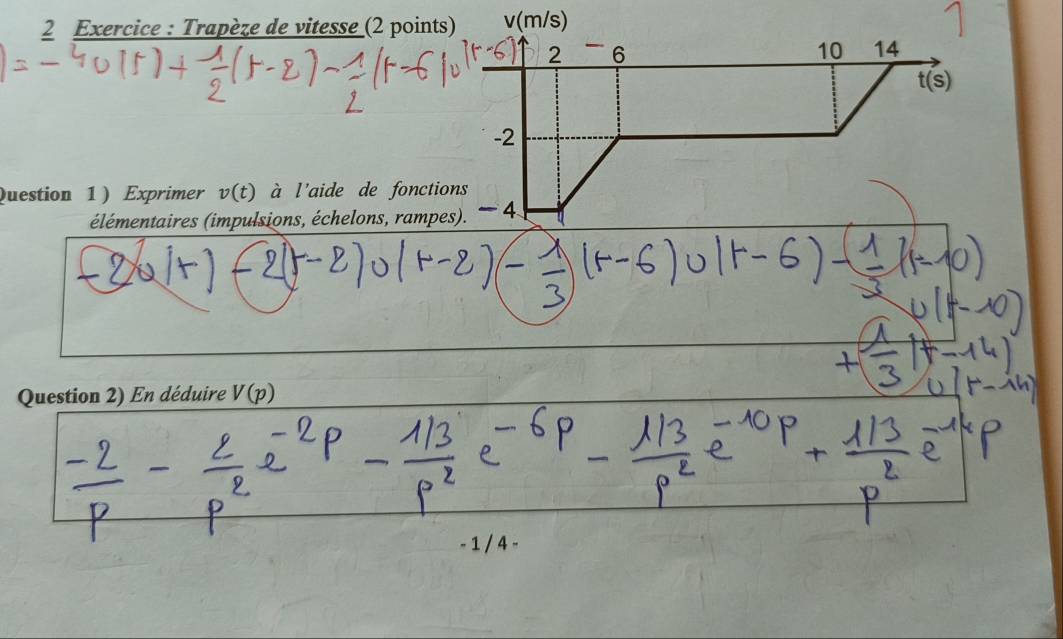 2 Exercice : Trapèze de vitesse (2 points)
v(m/s)
1
) = - 4 u(t) + 1/2 (t-2) - 1/2 (t-6) u(t-6)
2 - 6 10 14
t(s)
-2
Question 1) Exprimer v(t) à l'aide de fonctions
élémentaires (impulsions, échelons, rampes).
- 4
-2u(t) -2(t-2)u(t-2) - 1/3 (t-6)u(t-6) - 1/3 (t-10)
u(t-10)
+ 1/3 (t-14)
u(t-14)
Question 2) En déduire V(p)
-2/p - 2/p² e^-2p - 1/3/p² e^-6p - 1/3/p² e^-10p + 1/3/p² e^-14p
- 1 / 4 -